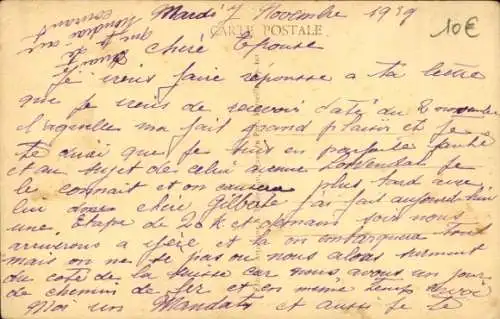 Mardi 7 Novembre 1939
10€
CARTE POSTALE
chère Epouse
Je viens faire réponse a ta lettre
que je viens de recevoir daté du 2 novembre
laquelle ma fait grand plaisir et Je
te dirai que je suis en parfaite santé
et au sujet des celui avenue Je
le connait et on plus tard avec
lui chère jai fait aujourd'hui
une Etape de 20 K et demain soir nous
arriverons a et la on embarquera tout
mais on ne sé pas ou nous alons surment
du coté de la suisse car nous avons un jour
de chemin de fer et en même temps
Moi un Mandats et aussi je te